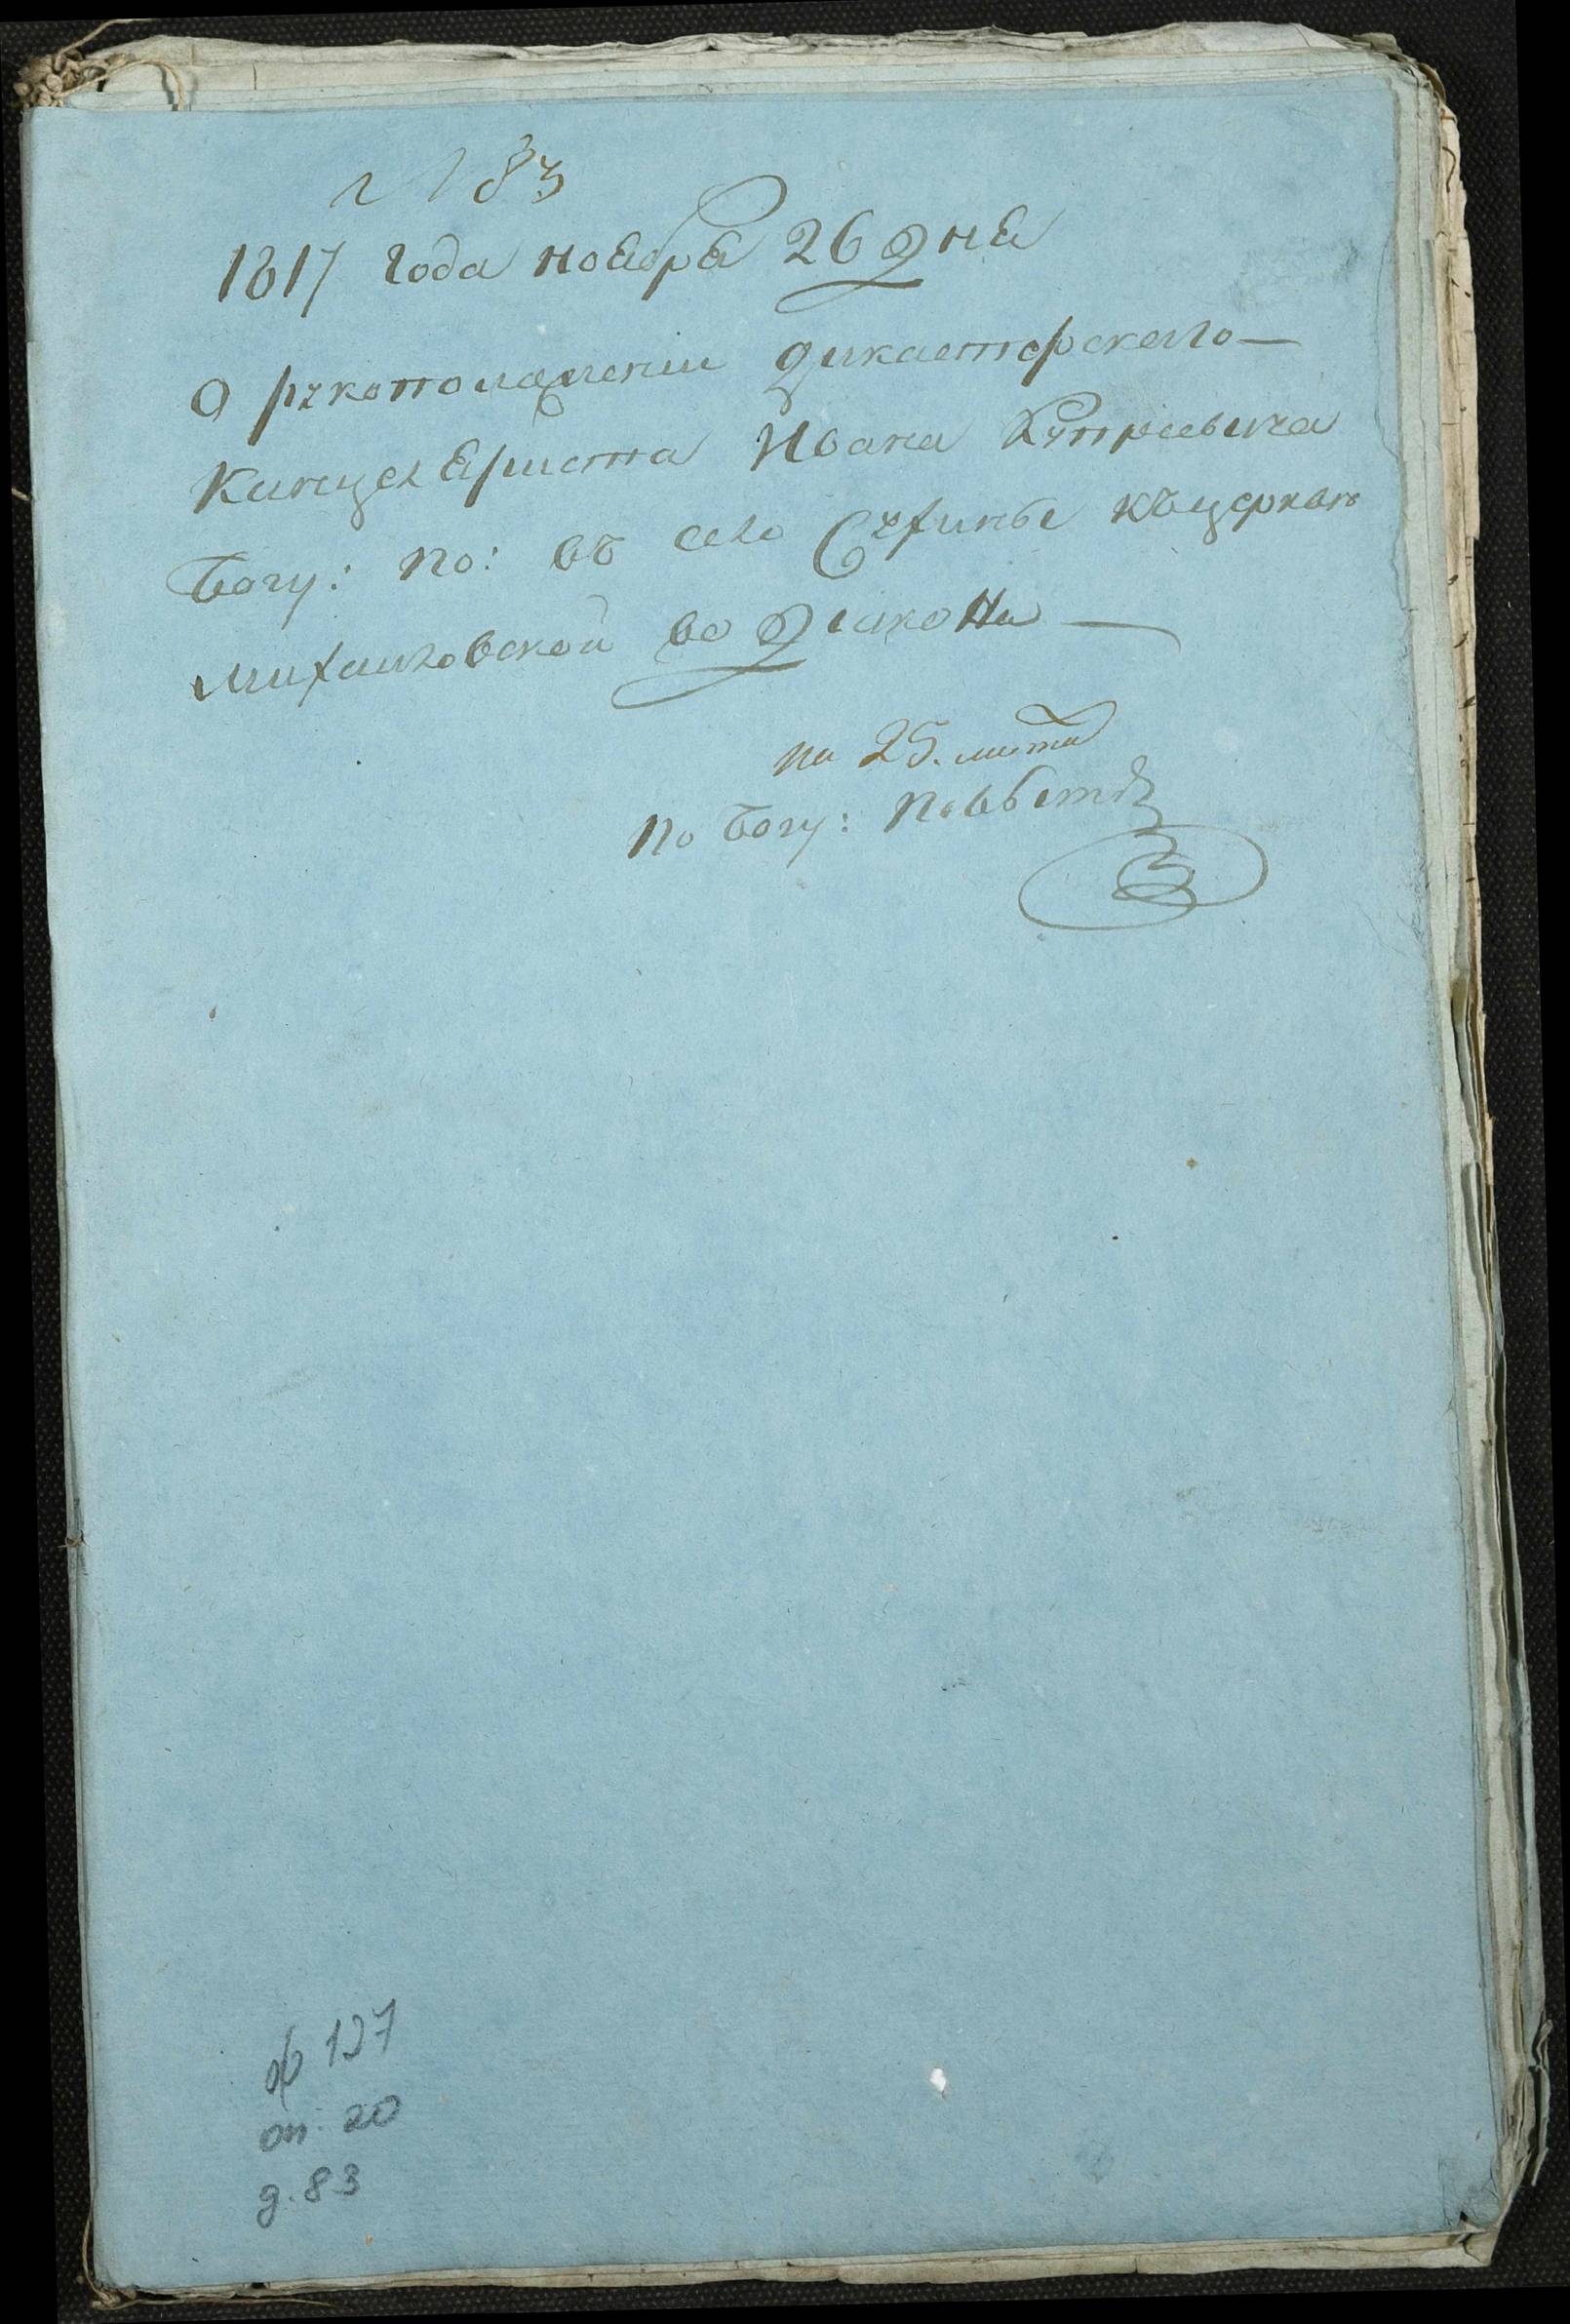 № 83
1817 года ноебре 26 дне
О рукоположении дикастерскаго —
Канцелериста Ивана Купріевича
Богу: по: въ село Сухины къ церкви
Михаиловской во діакона —
на 25. листа
По Богу: Повѣтѣ
ф 127
оп. 20
д. 83